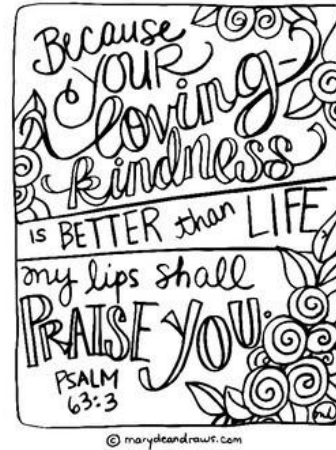 Because
YOUR
loving-
kindness
is BETTER than LIFE
my lips shall
PRAISE YOU.
PSALM
63:3
© marydeandraws.com